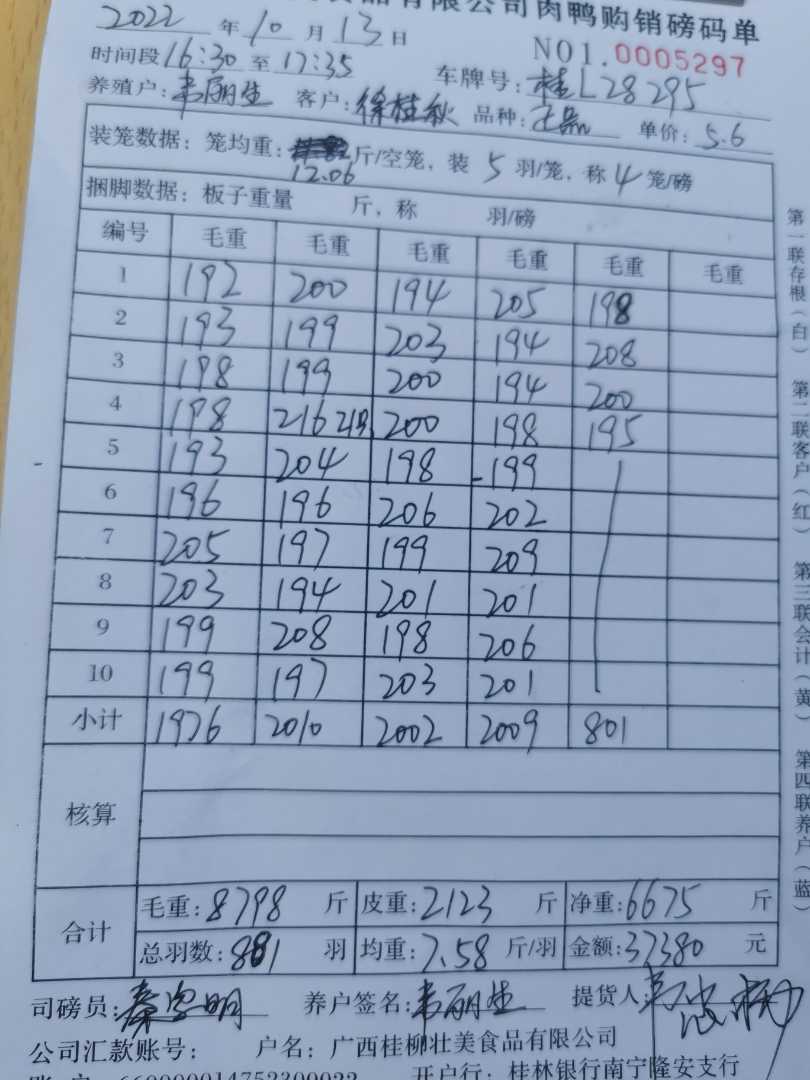 食品有限公司肉鸭购销磅码单
2022 年 10 月 13 日
NO1.0005297
时间段 16:30 至 17:35 车牌号: 桂L28295
养殖户: 韦丽生 客户: 徐桂秋 品种: 单价: 5.6
装笼数据: 笼均重: 12.06 斤/空笼, 装 5 羽/笼, 称 4 笼/磅
捆脚数据: 板子重量 斤, 称 羽/磅
编号 毛重 毛重 毛重 毛重 毛重 毛重
1 192 200 194 205 198
2 193 199 203 194 208
3 198 199 200 194 200
4 198 216 21羽 200 198 195
5 193 204 198 199
6 196 196 206 202
7 205 197 199 209
8 203 194 201 201
9 199 208 198 206
10 199 197 203 201
小计 1976 2010 2002 2009 801
核算
合计
毛重: 8798 斤 皮重: 2123 斤 净重: 6675 斤
总羽数: 881 羽 均重: 7.58 斤/羽 金额: 37380 元
司磅员: 养户签名: 韦丽生 提货人:
公司汇款账号: 户名: 广西桂柳壮美食品有限公司
账户 660000014752300022 开户行: 桂林银行南宁隆安支行
第一联存根(白) 第二联客户(红) 第三联会计(黄) 第四联养户(蓝)